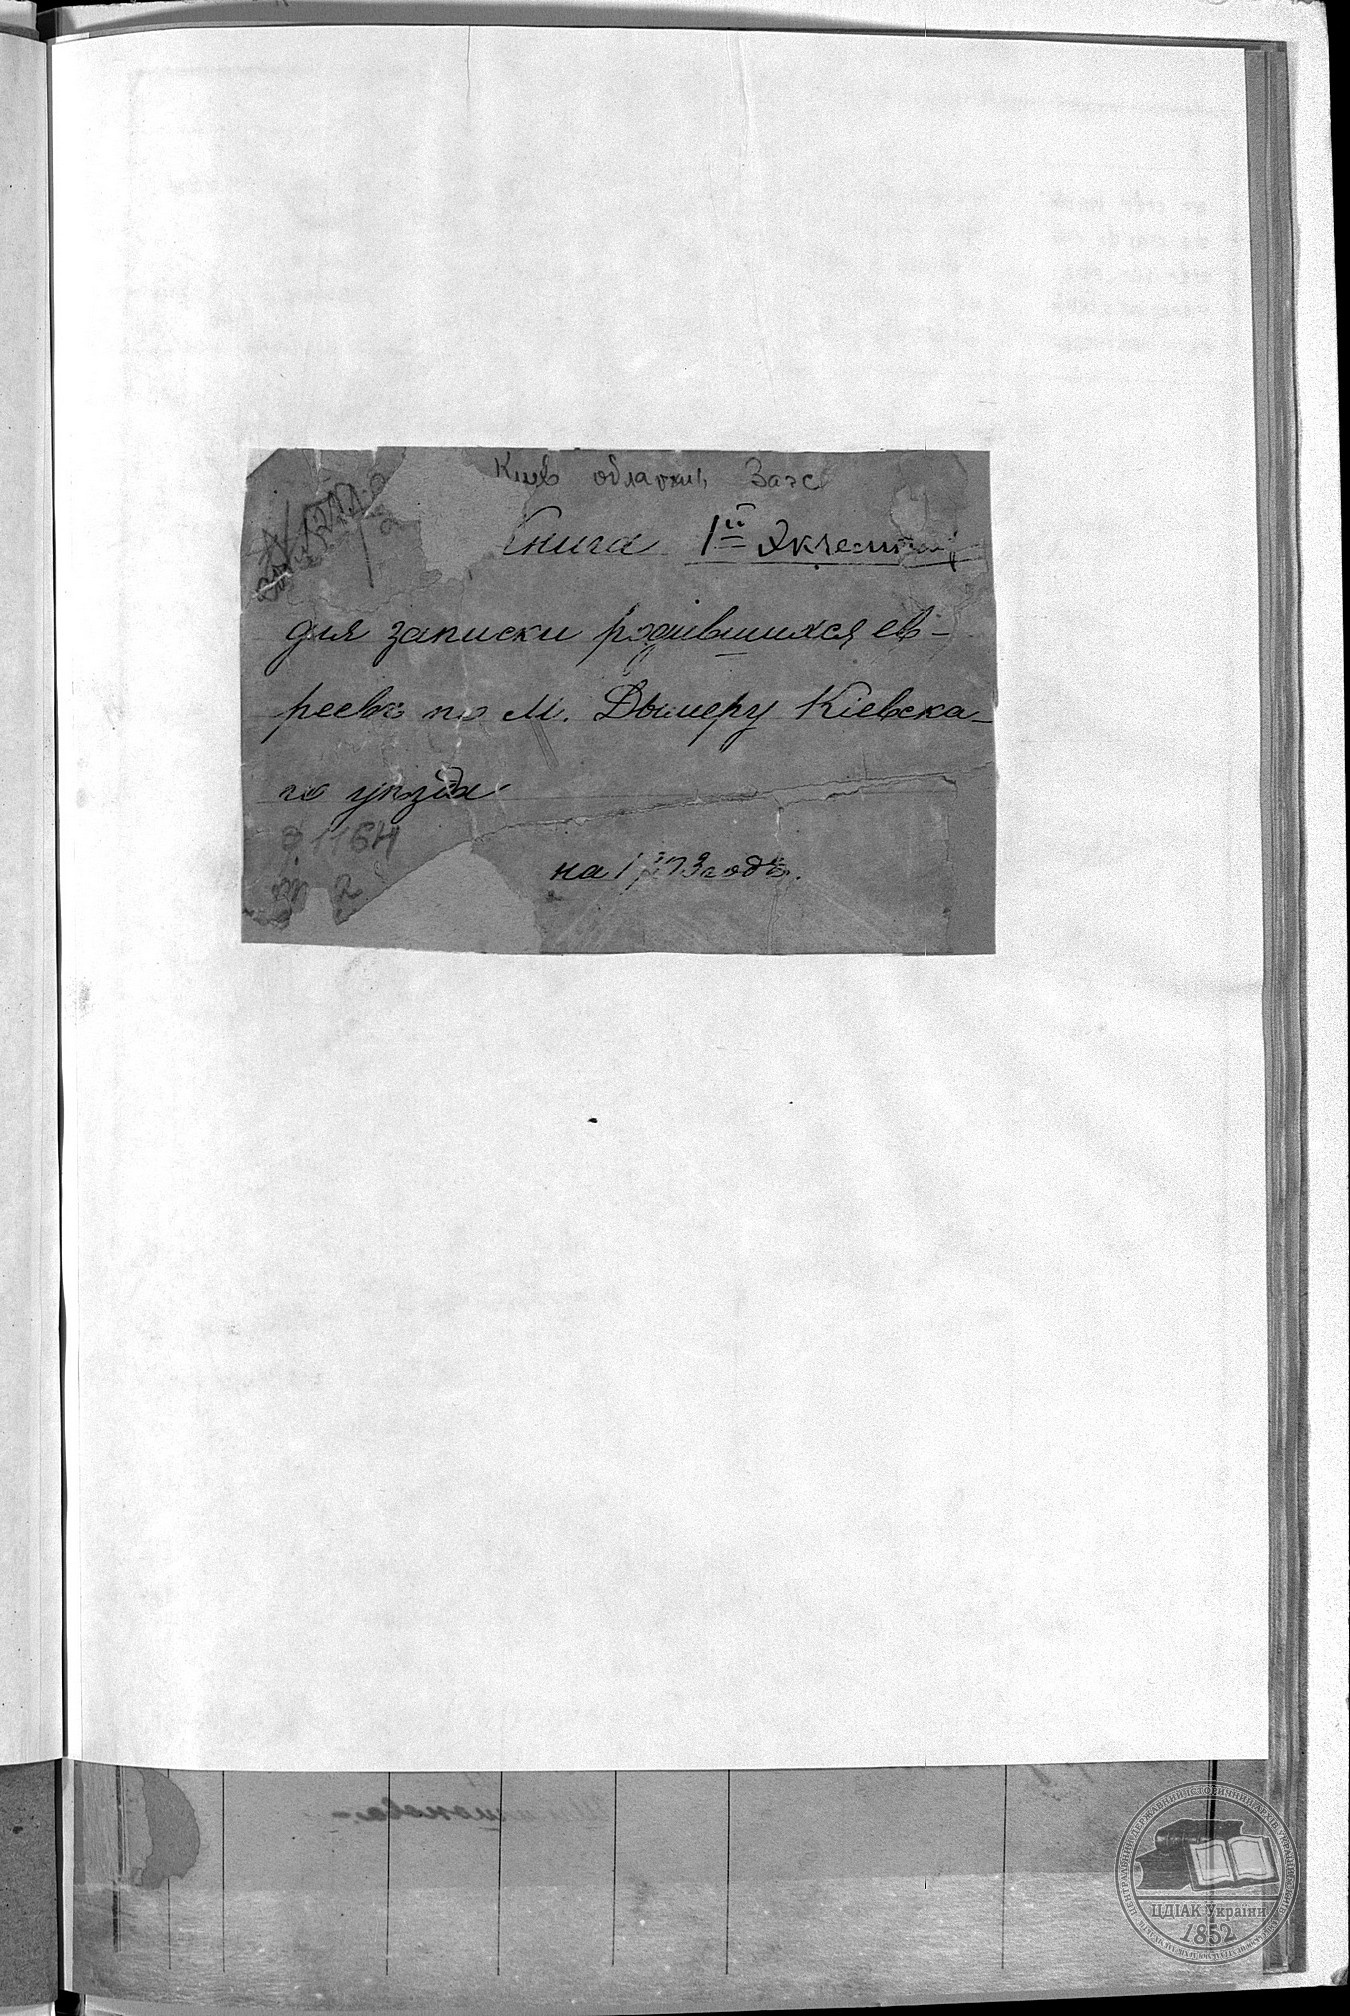 Киев областн Загс
Книга 1й Экчемпляр
для записки родившихся ев-
реевъ по М. Дымеру Кіевска-
го уѣзда
ф 1164
на 1873 годъ.
2
ЦДІАК України
1852